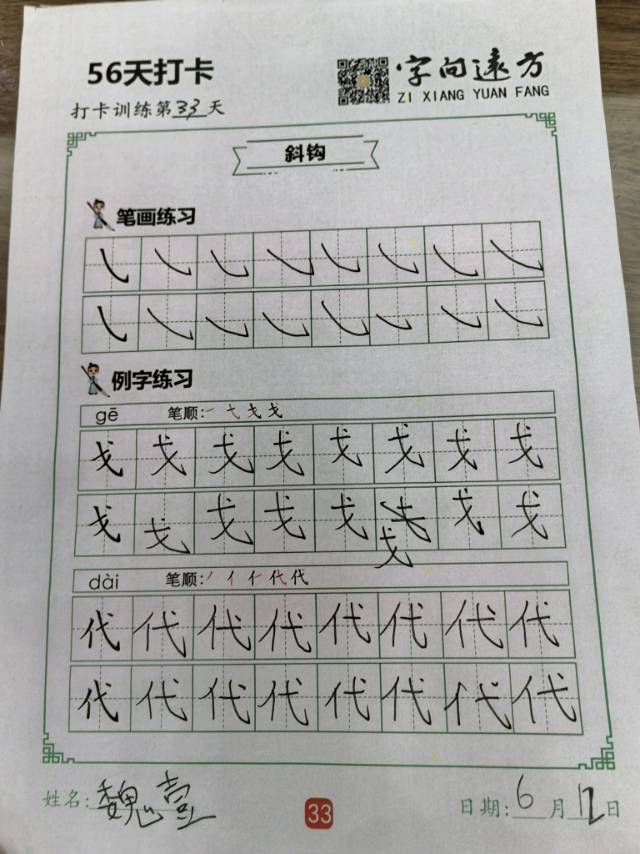 56天打卡
字向远方
ZI XIANG YUAN FANG
打卡训练第33天
斜钩
笔画练习
㇂㇂㇂㇂㇂㇂㇂㇂
㇂㇂㇂㇂㇂㇂㇂㇂
例字练习
gē 笔顺:㇐ 七 戈 戈
戈戈戈戈戈戈戈戈
戈戈戈戈戈戈戈戈
dài 笔顺:㇓ 亻 亻 代 代
代代代代代代代代
代代代代代代代代
姓名:魏壹
33
日期:6月12日